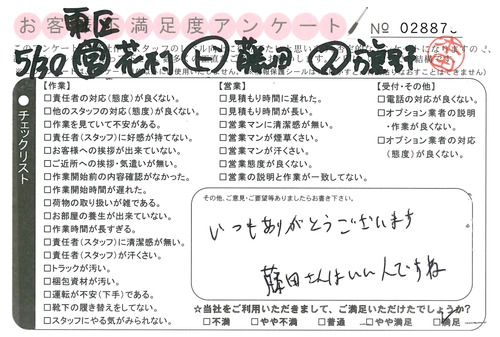 お客様不満足度アンケート
東区
No 02887
5/30 営 花村 藤田
【作業】
□責任者の対応(態度)が良くない。
□他のスタッフの対応(態度)が良くない。
□作業を見ていて不安がある。
□責任者(スタッフ)に好感が持てない。
□お客様への挨拶が出来ていない。
□ご近所への挨拶・気遣いが無い。
□作業開始前の内容確認がなかった。
□作業開始時間が遅れた。
□荷物の取り扱いが雑である。
□お部屋の養生が出来ていない。
□作業時間が長すぎる。
□責任者(スタッフ)に清潔感が無い。
□責任者(スタッフ)が汗くさい。
□トラックが汚い。
□梱包資材が汚い。
□運転が不安(下手)である。
□靴下の履き替えをしてない。
□スタッフにやる気がみられない。
【営業】
□見積もり時間に遅れた。
□見積もり時間が長い。
□営業マンに清潔感が無い。
□営業マンが煙草くさい。
□営業マンが汗くさい。
□営業態度が良くない。
□営業の説明と作業が一致してない。
【受付・その他】
□電話の対応が良くない。
□オプション業者の説明
・作業が良くない。
□オプション業者の対応
(態度)が良くない。
●チェックリスト
その他、ご意見・ご要望等ありましたらお書き下さい。
いつもありがとうございます
藤田さんはいい人ですね
☆当社をご利用いただきまして、ご満足いただけたでしょうか?
□不満 □やや不満 □普通 □やや満足 □満足